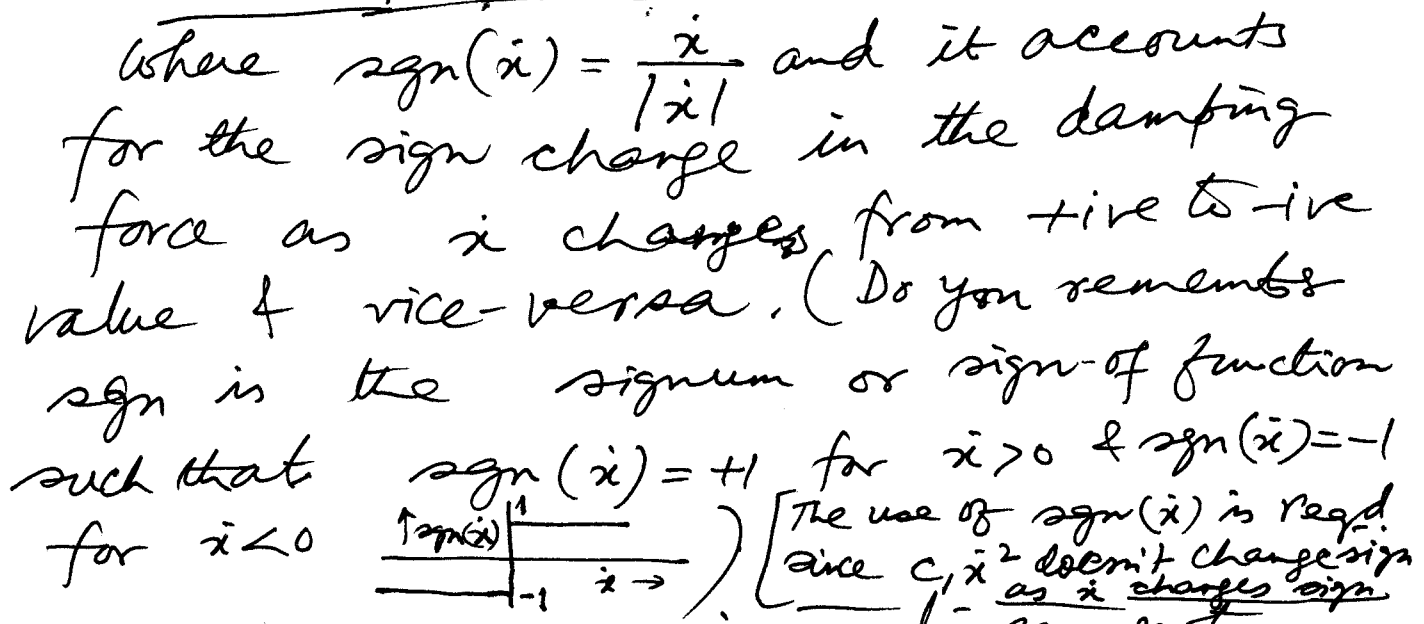 where sgn(ẋ) = ẋ/|ẋ| and it accounts
for the sign change in the damping
force as ẋ changes from +ive to -ive
value & vice-versa. (Do you remember
sgn is the signum or sign-of function
such that sgn(ẋ) = +1 for ẋ>0 & sgn(ẋ)=-1
for ẋ<0 ↑sgn(ẋ) 1 -1 ẋ → )
[The use of sgn(ẋ) is reqd.
since c₁ẋ² doesn't change sign
as ẋ changes sign